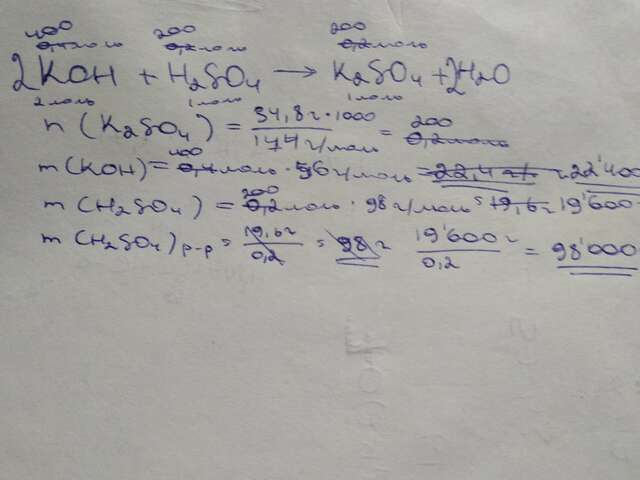 400 200 200
0,4моль 0,2моль 0,2моль
2KOH + H₂SO₄ → K₂SO₄ + 2H₂O
2моль 1моль 1моль
n (K₂SO₄) = 34,8г·1000 / 174г/моль = 200 0,2моль
m(KOH) = 400 0,4моль · 56г/моль = 22,4г 22'400
m(H₂SO₄) = 200 0,2моль · 98г/моль = 19,6г 19'600
m(H₂SO₄)р-р = 19,6г / 0,2 = 98г 19'600г / 0,2 = 98'000